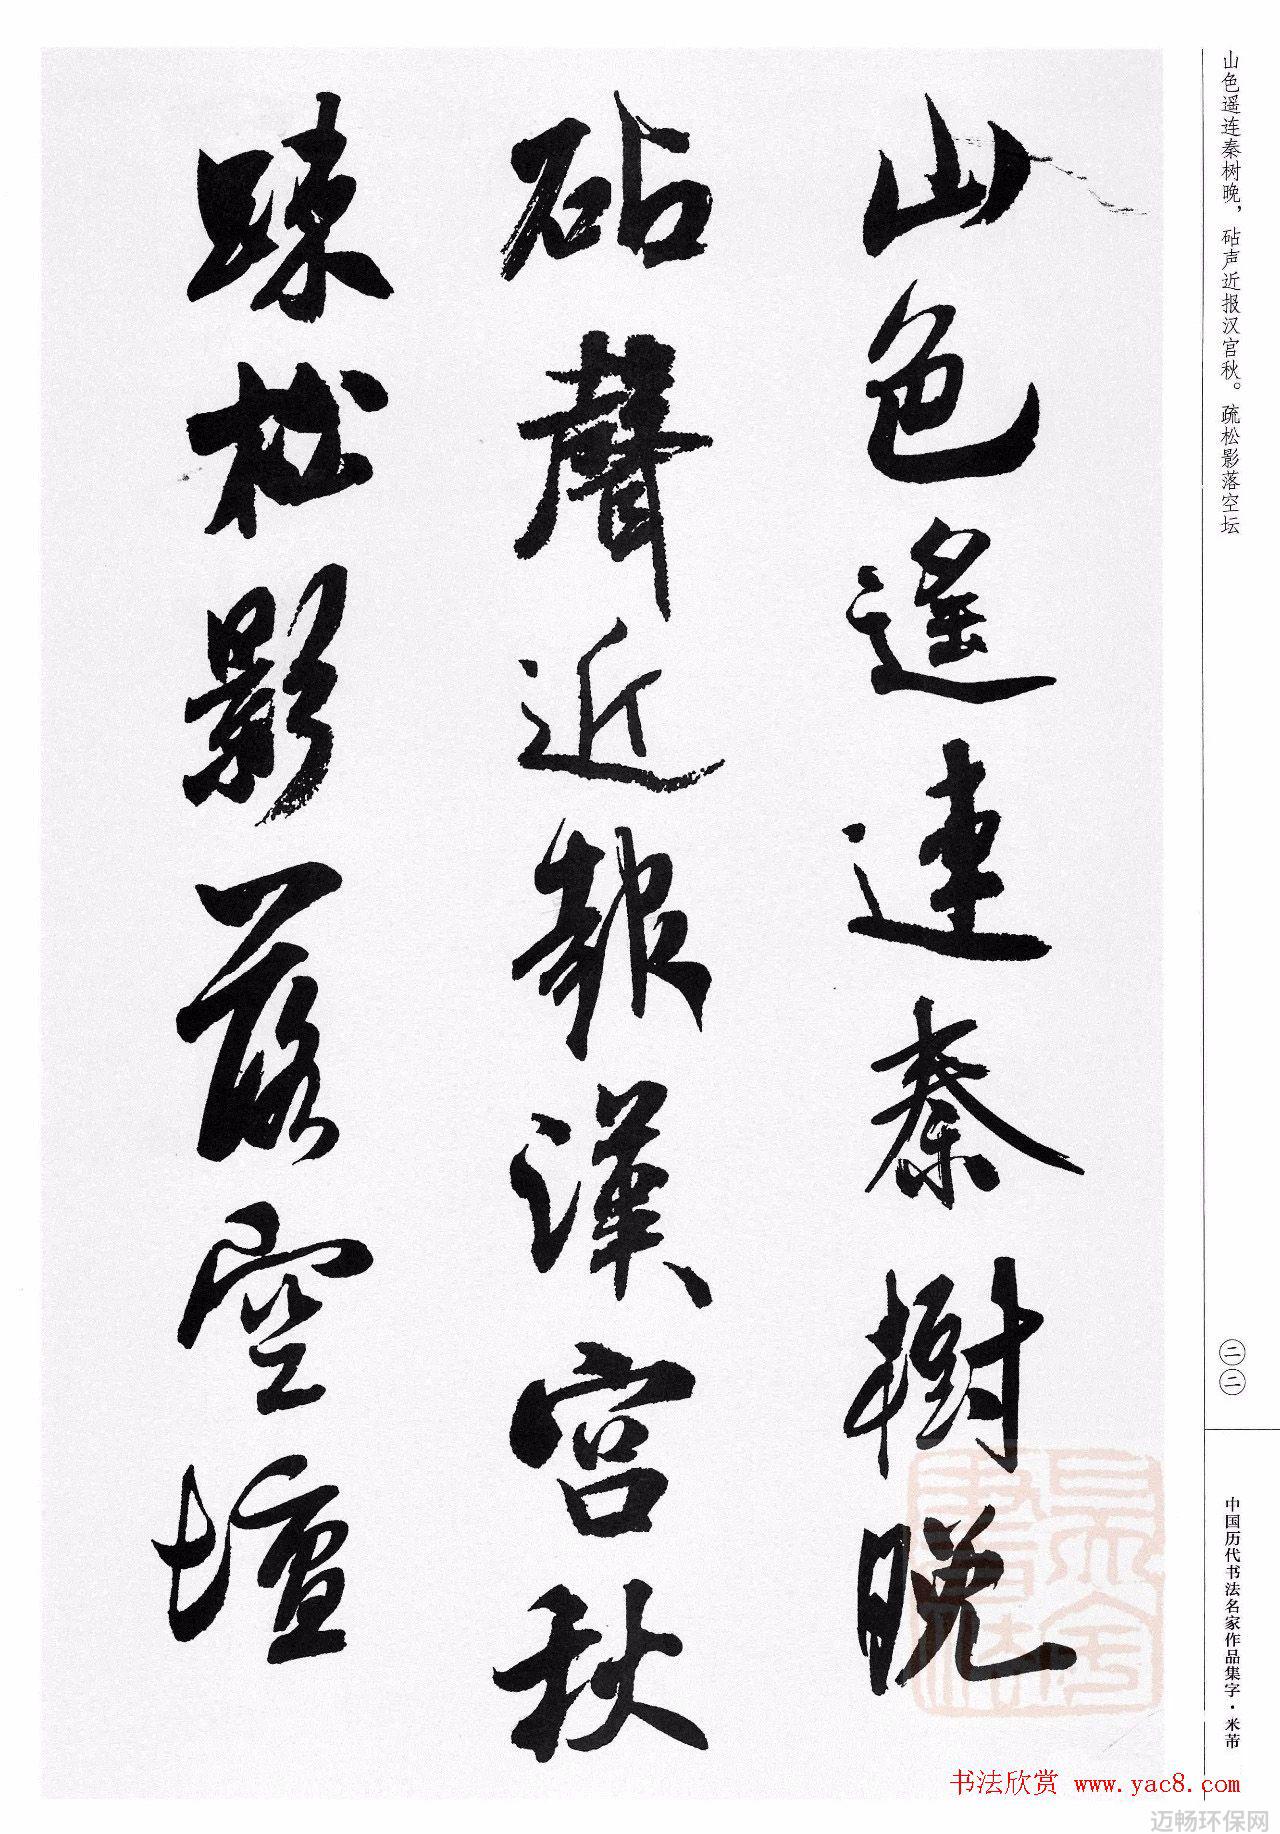 山色遥连秦树晚，砧声近报汉宫秋。疏松影落空坛
二二
中国历代书法名家作品集字·米芾
山色遙連秦樹晚
砧聲近報漢宮秋
踈松影落空壇
书法欣赏 www.yac8.com
迈畅环保网